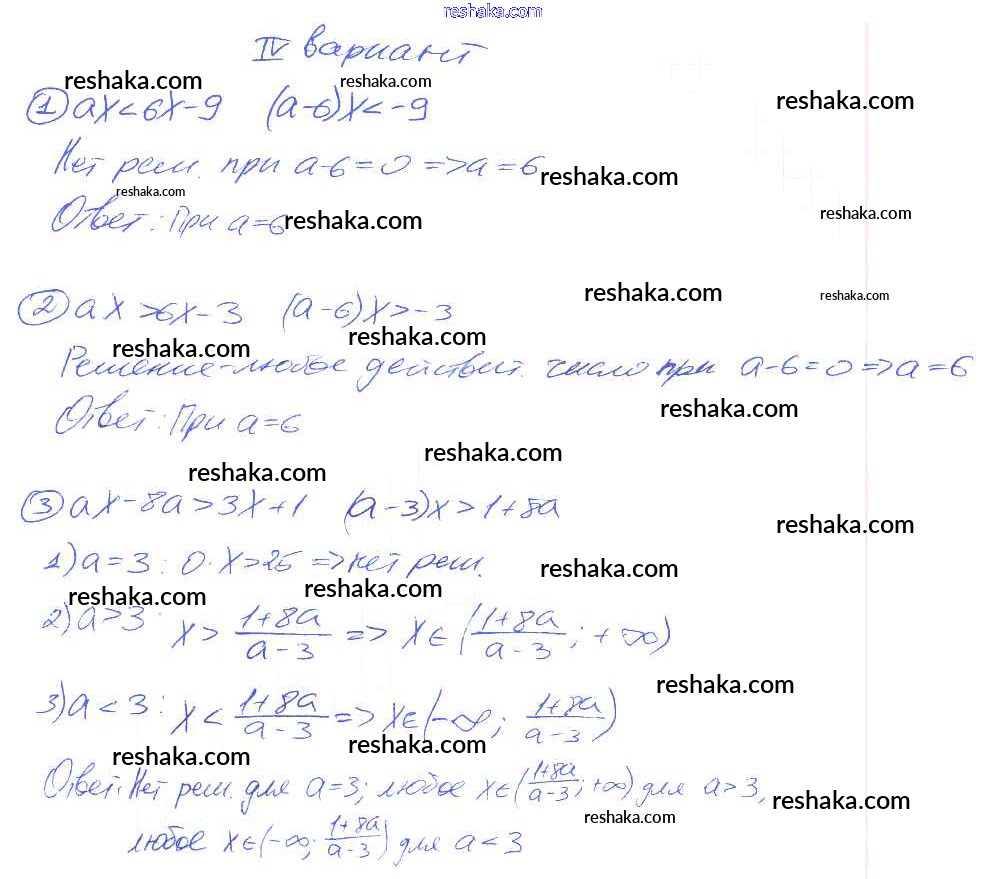 reshaka.com
IV вариант
reshaka.com reshaka.com
① ax<6x-9 (a-6)x<-9 reshaka.com
Нет реш. при a-6=0 =>a=6 reshaka.com
reshaka.com reshaka.com
Ответ: При a=6 reshaka.com
reshaka.com reshaka.com
② ax >6x-3 (a-6)x>-3
reshaka.com reshaka.com
Решение-любое действит. число при a-6=0=>a=6
reshaka.com
Ответ: При a=6
reshaka.com reshaka.com
③ ax-8a>3x+1 (a-3)x>1+8a
reshaka.com
1) a=3: 0·x>25 =>нет реш. reshaka.com
reshaka.com reshaka.com
2) a>3: x> (1+8a)/(a-3) => x∈((1+8a)/(a-3); +∞)
reshaka.com
3) a<3: x< (1+8a)/(a-3) => x∈(-∞; (1+8a)/(a-3))
reshaka.com reshaka.com
Ответ: Нет реш. для a=3; любое x∈((1+8a)/(a-3); +∞) для a>3,
reshaka.com reshaka.com
любое x∈(-∞; (1+8a)/(a-3)) для a<3